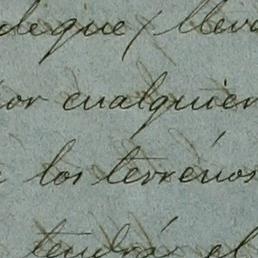 deque, lleva
por cualquier
los terrenos
tendrá el